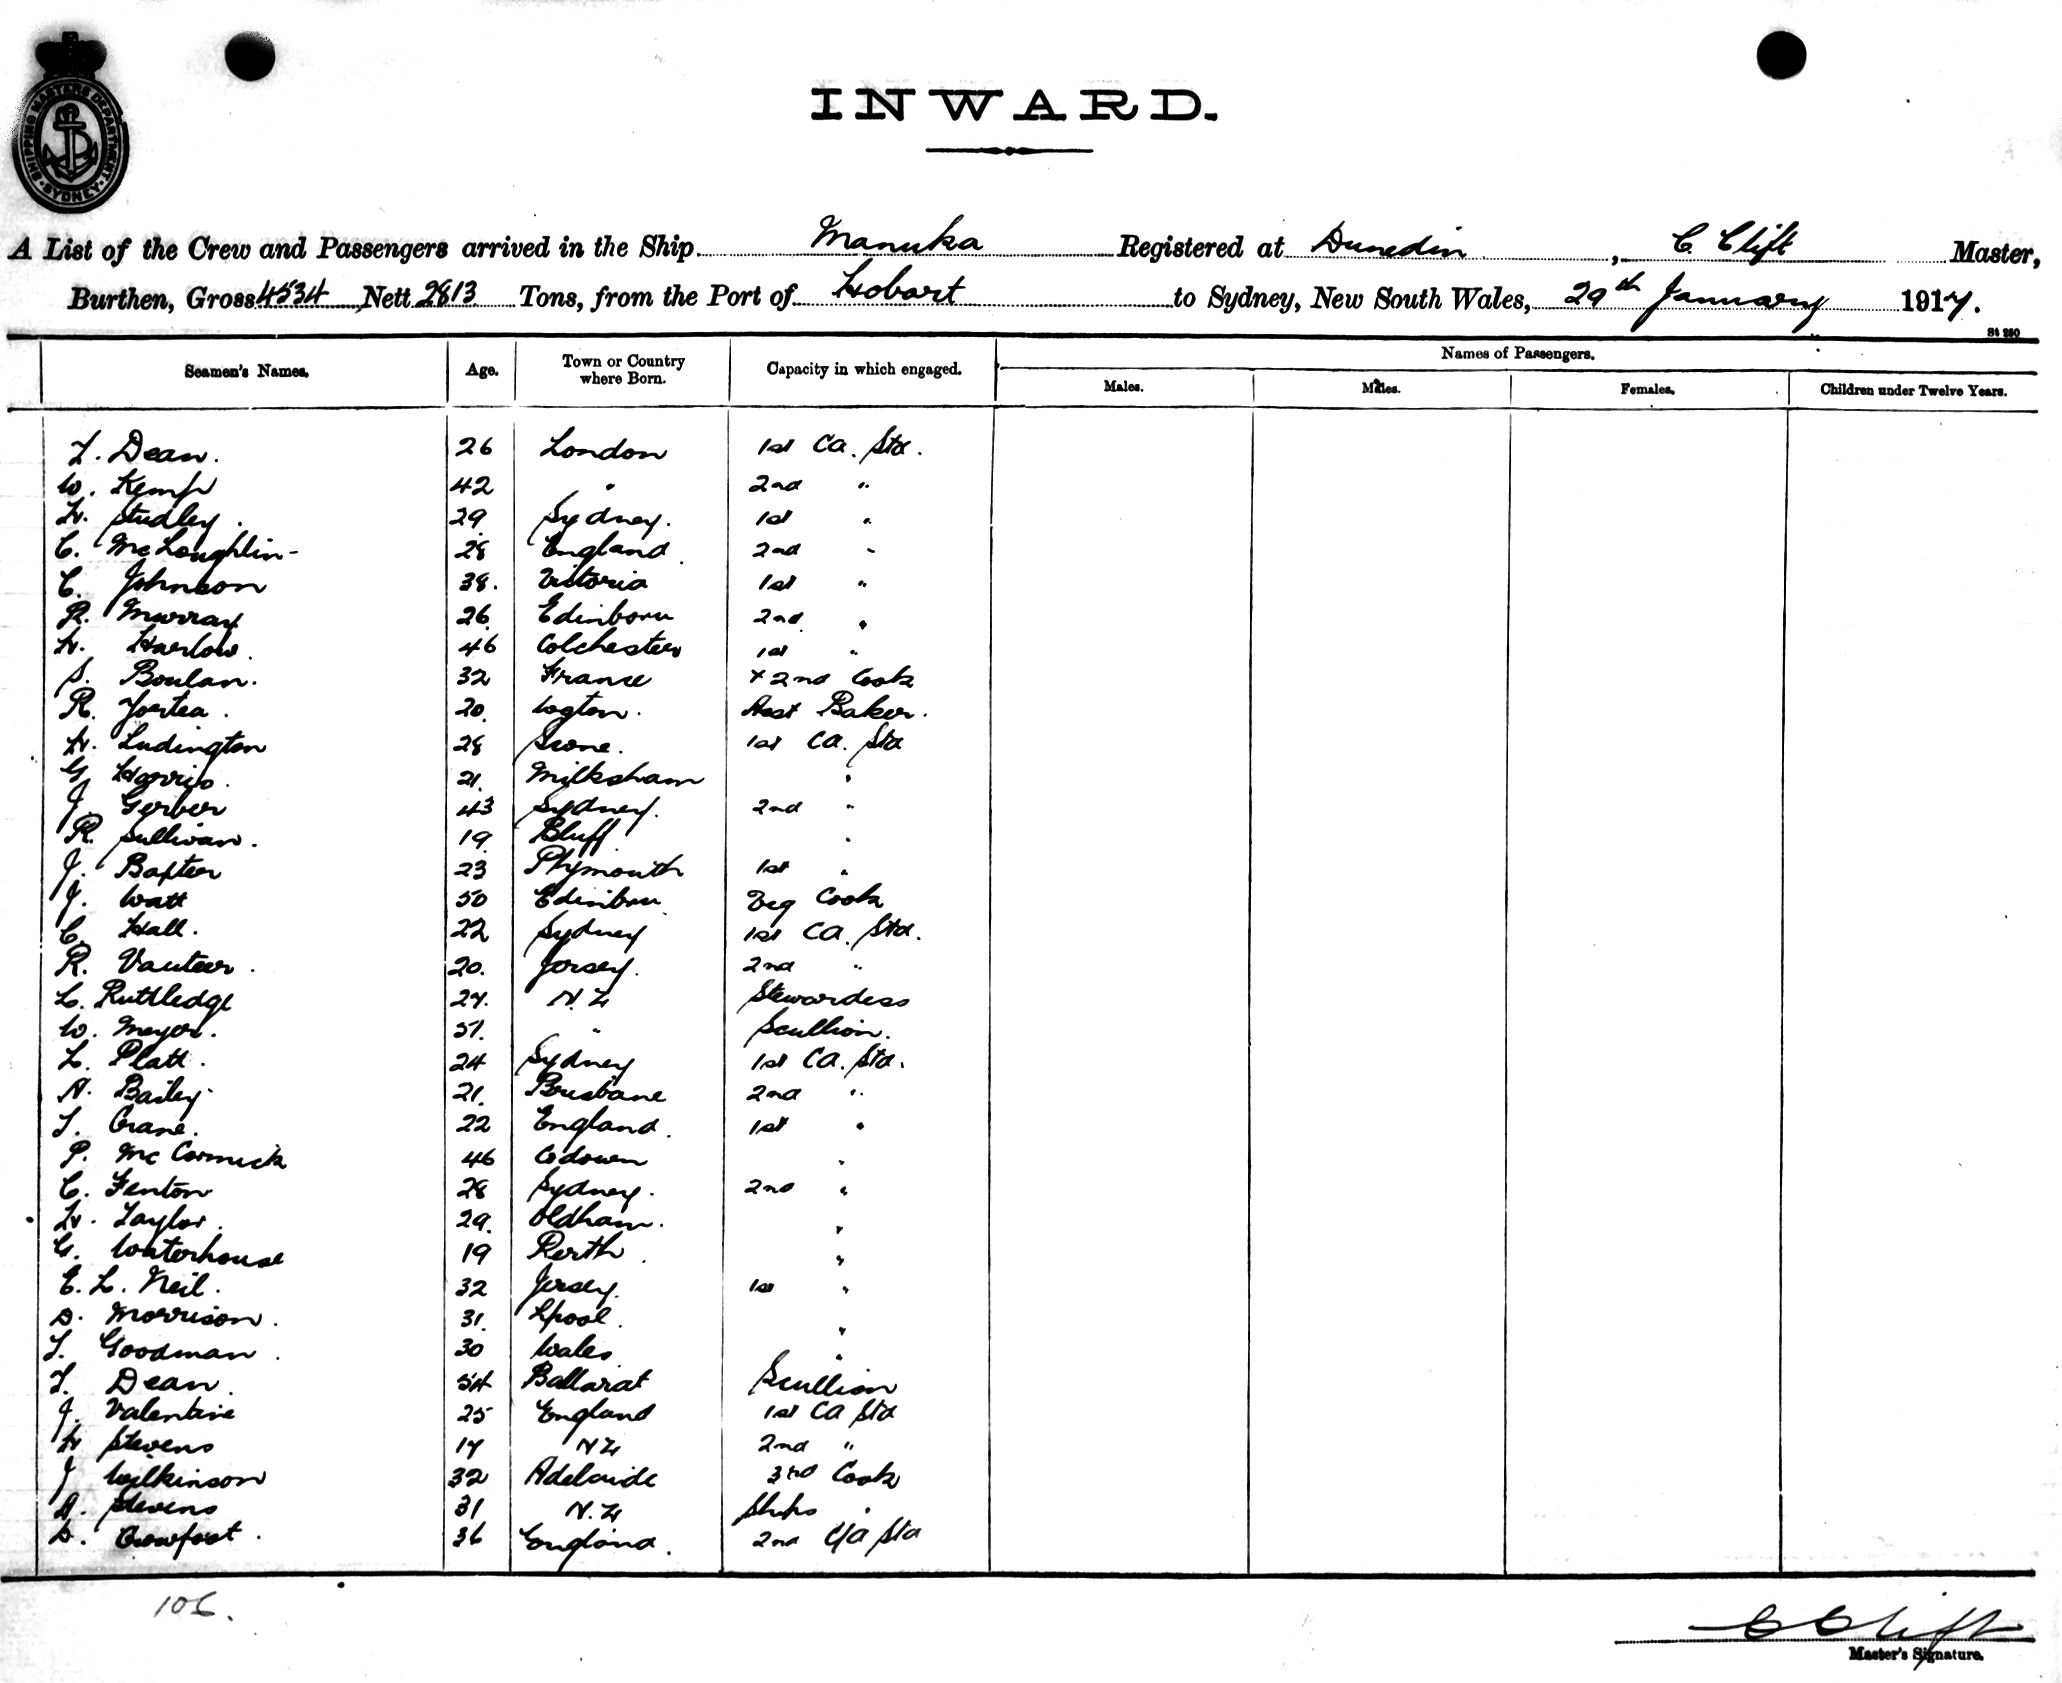 SHIPPING MASTERS DEPARTMENT · SYDNEY ·
INWARD.
A List of the Crew and Passengers arrived in the Ship Manuka Registered at Dunedin, C. Clift Master,
Burthen, Gross 4534 Nett 2813 Tons, from the Port of Hobart to Sydney, New South Wales, 29th January 1917.
St 280
Seamen's Names. Age. Town or Country where Born. Capacity in which engaged. Names of Passengers.
Males. Males. Females. Children under Twelve Years.
Dean. 26 London 1st Ca. Std.
W. Kemp 42 " 2nd "
H. Studley. 29 Sydney. 1st "
C. McLoughlin- 28 England 2nd "
C. Johnson 38. Victoria 1st "
R. Murray 26 Edinboru 2nd "
H. Harlow. 46 Colchester 1st "
S. Boulan. 32 France + 2nd Cook
R. 20. Wgton. Asst Baker.
H. Ludington 28 Scone. 1st Ca. Std
G Harris. 21. Milksham "
J. Gerber 43 Sydney. 2nd "
R. Sullivan. 19. Bluff "
J. Baxter 23 Plymouth 1st "
J. Watt 50 Edinbru Veg Cook
C. Hall. 22 Sydney 1st Ca. Std.
R. Vauteer. 20. Jersey. 2nd "
L. Ruttledge 27. N.Z Stewardess
W. Meyer. 51. " Scullion.
L. Platt. 24 Sydney 1st Ca. Std.
A. Bailey 21. Brisbane 2nd "
Crane. 22 England. 1st "
P. McCormick 46 "
C. Fenton 28 Sydney. 2nd "
H. Taylor. 29. Oldham. "
G. Waterhouse 19 Perth. "
E. L. Neil. 32 Jersey. 1st "
D. Morrison. 31. Lpool. "
Goodman. 30 Wales "
Dean. 54 Ballarat Scullion
J. Valentine 25 England 1st Ca Std
H Stevens 17 NZ 2nd "
J Wilkinson 32 Adelaide 3rd Cook
A. Stevens 31 N.Z Ships "
D. Crowfoot. 36 England. 2nd C/a Std
C Clift
Master's Signature.